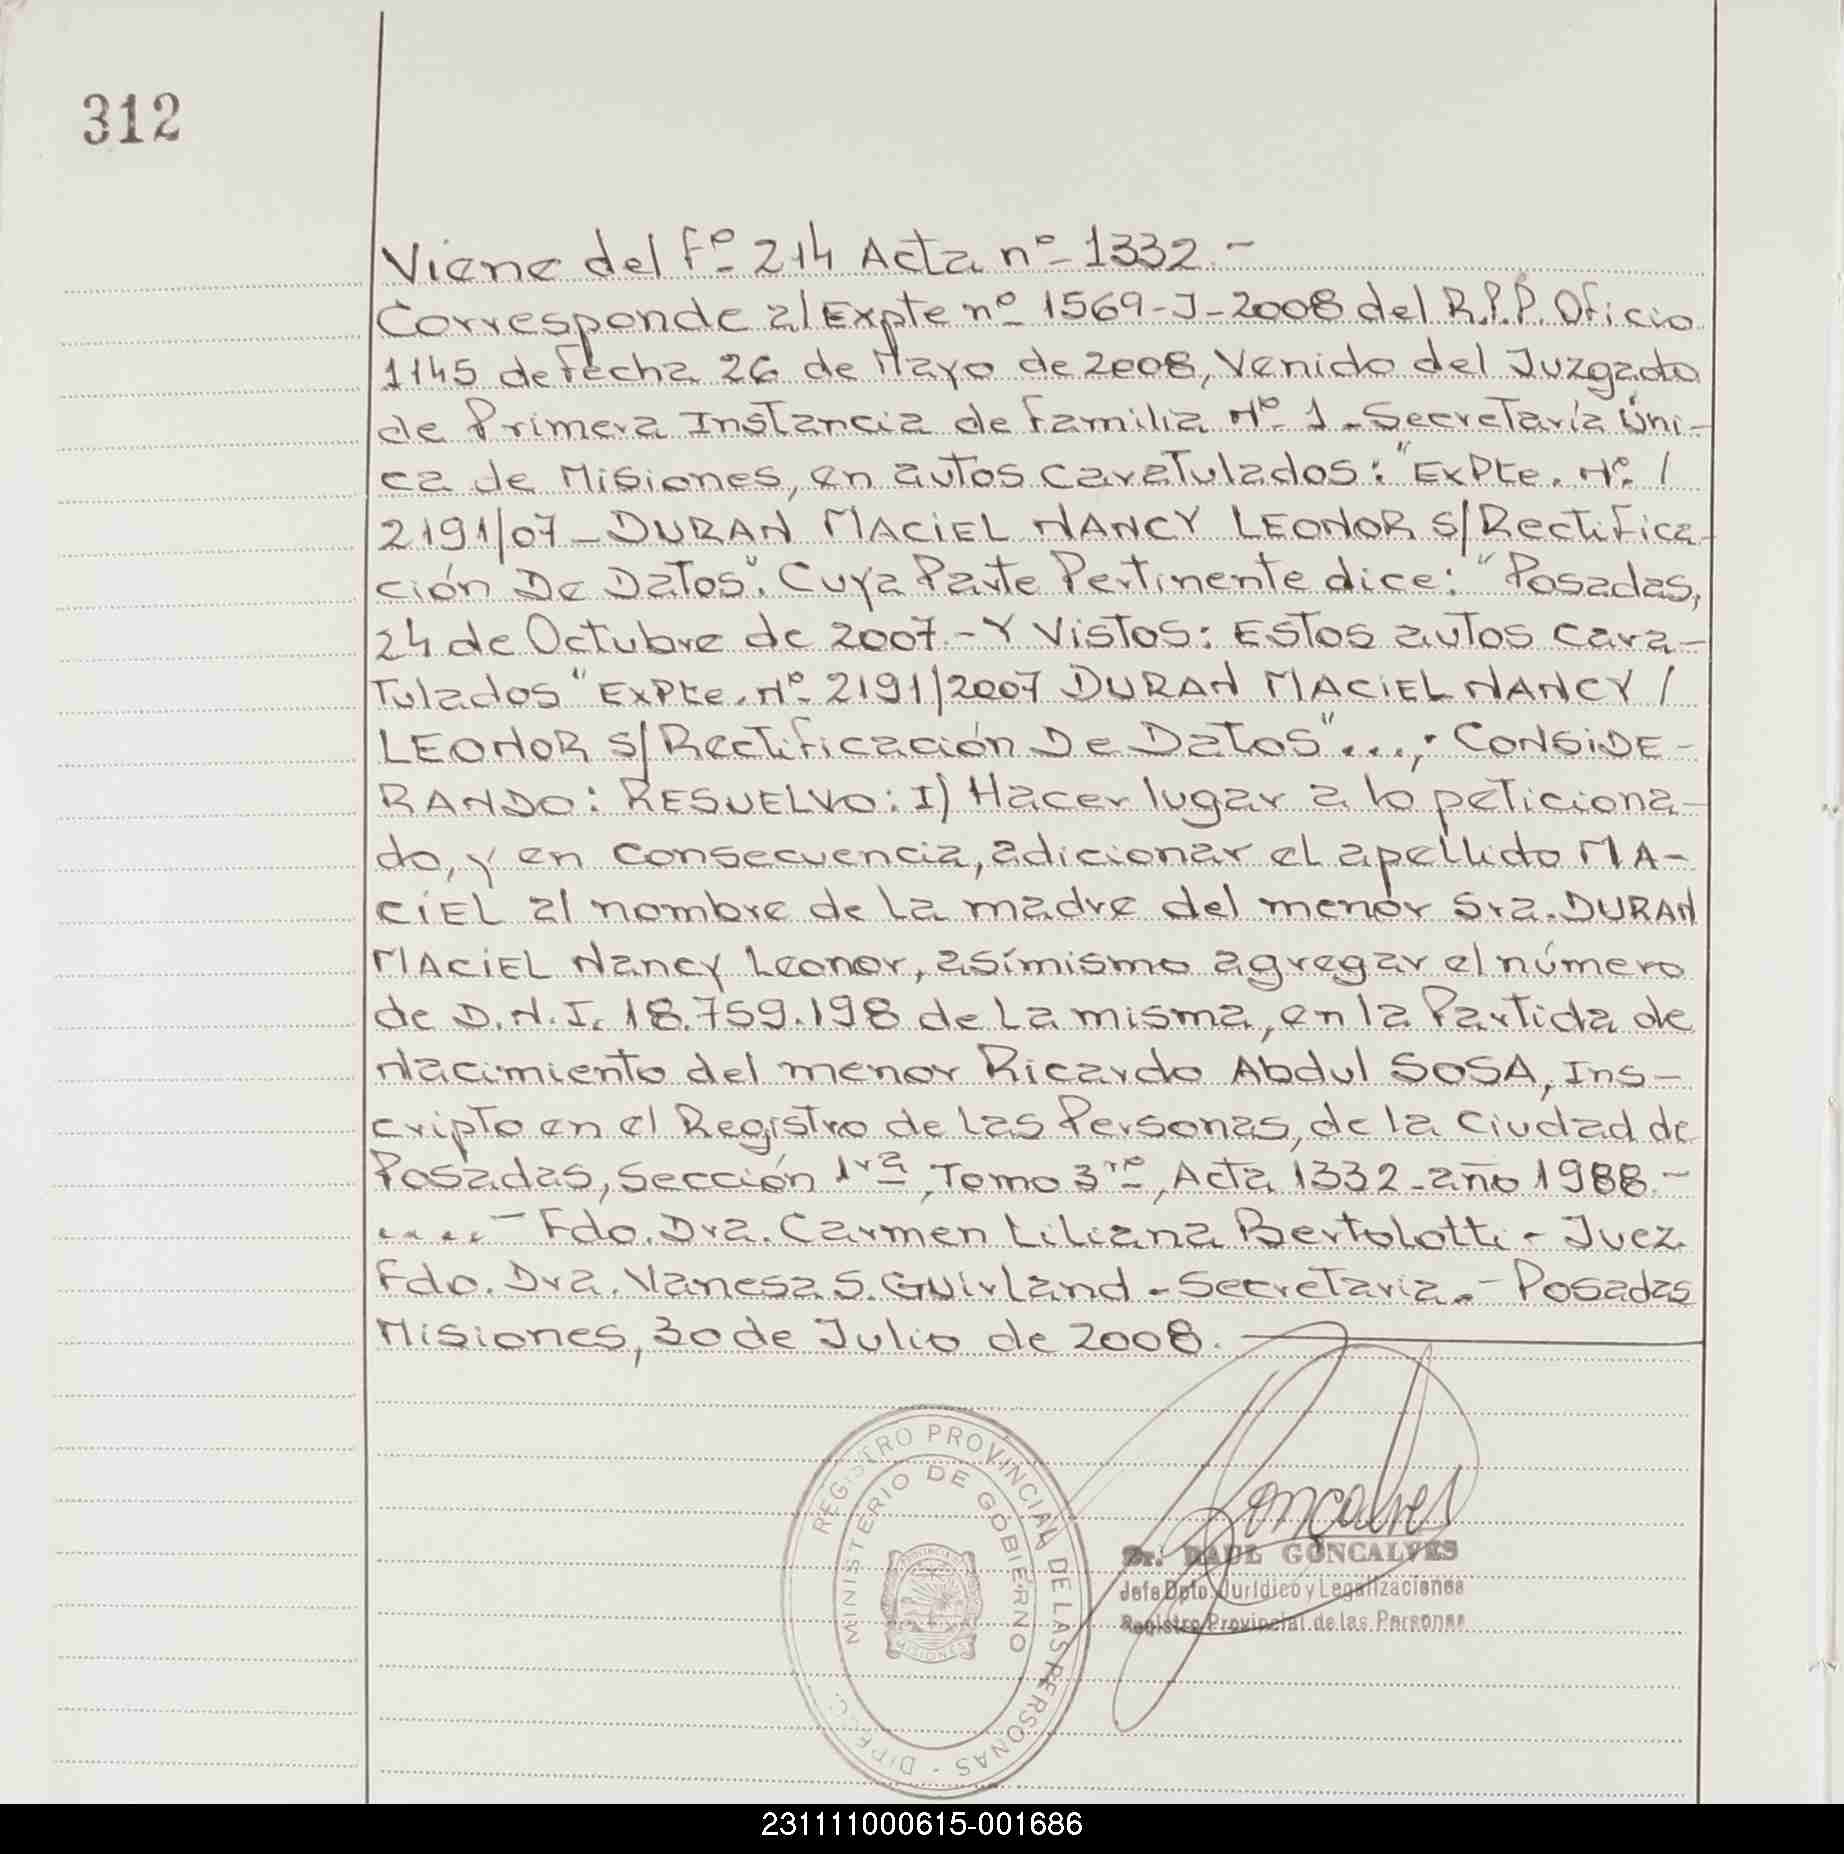 312
Viene del Fº 214 Acta nº 1332.-
Corresponde al Expte nº 1569-J-2008 del R.P.P. Oficio
1145 de fecha 26 de Mayo de 2008, Venido del Juzgado
de Primera Instancia de Familia Nº 1 - Secretaría Úni-
ca de Misiones, en autos caratulados: "ExPte. Nº /
2191/07 - DURAN MACIEL NANCY LEONOR S/Rectifica-
ción De Datos". Cuya Parte Pertinente dice: "Posadas,
24 de Octubre de 2007.- Y Vistos: Estos autos cara-
Tulados "ExPte. Nº 2191/2007 DURAN MACIEL NANCY /
LEONOR S/Rectificación De Datos"...; CONSIDE-
RANDO: RESUELVO: I) Hacer lugar a lo peticiona-
do, y en consecuencia, adicionar el apellido MA-
CIEL al nombre de la madre del menor Sra. DURAN
MACIEL Nancy Leonor, asímismo agregar el número
de D.N.I. 18.759.198 de la misma, en la Partida de
Nacimiento del menor Ricardo Abdul SOSA, Ins-
cripto en el Registro de las Personas, de la Ciudad de
Posadas, Sección 1ra, Tomo 3ro, Acta 1332 - año 1988.-
.....- Fdo. Dra. Carmen Liliana Bertolotti - Juez.
Fdo. Dra. Vanesa S. Guirland - Secretaria.- Posadas
Misiones, 30 de Julio de 2008.
REGISTRO PROVINCIAL DE LAS PERSONAS - DIPESC.
MINISTERIO DE GOBIERNO
PROVINCIA DE
MISIONES
Goncalves
Dr. RAUL GONCALVES
Jefe Dpto. Jurídico y Legalizaciones
Registro Provincial de las Personas
231111000615-001686